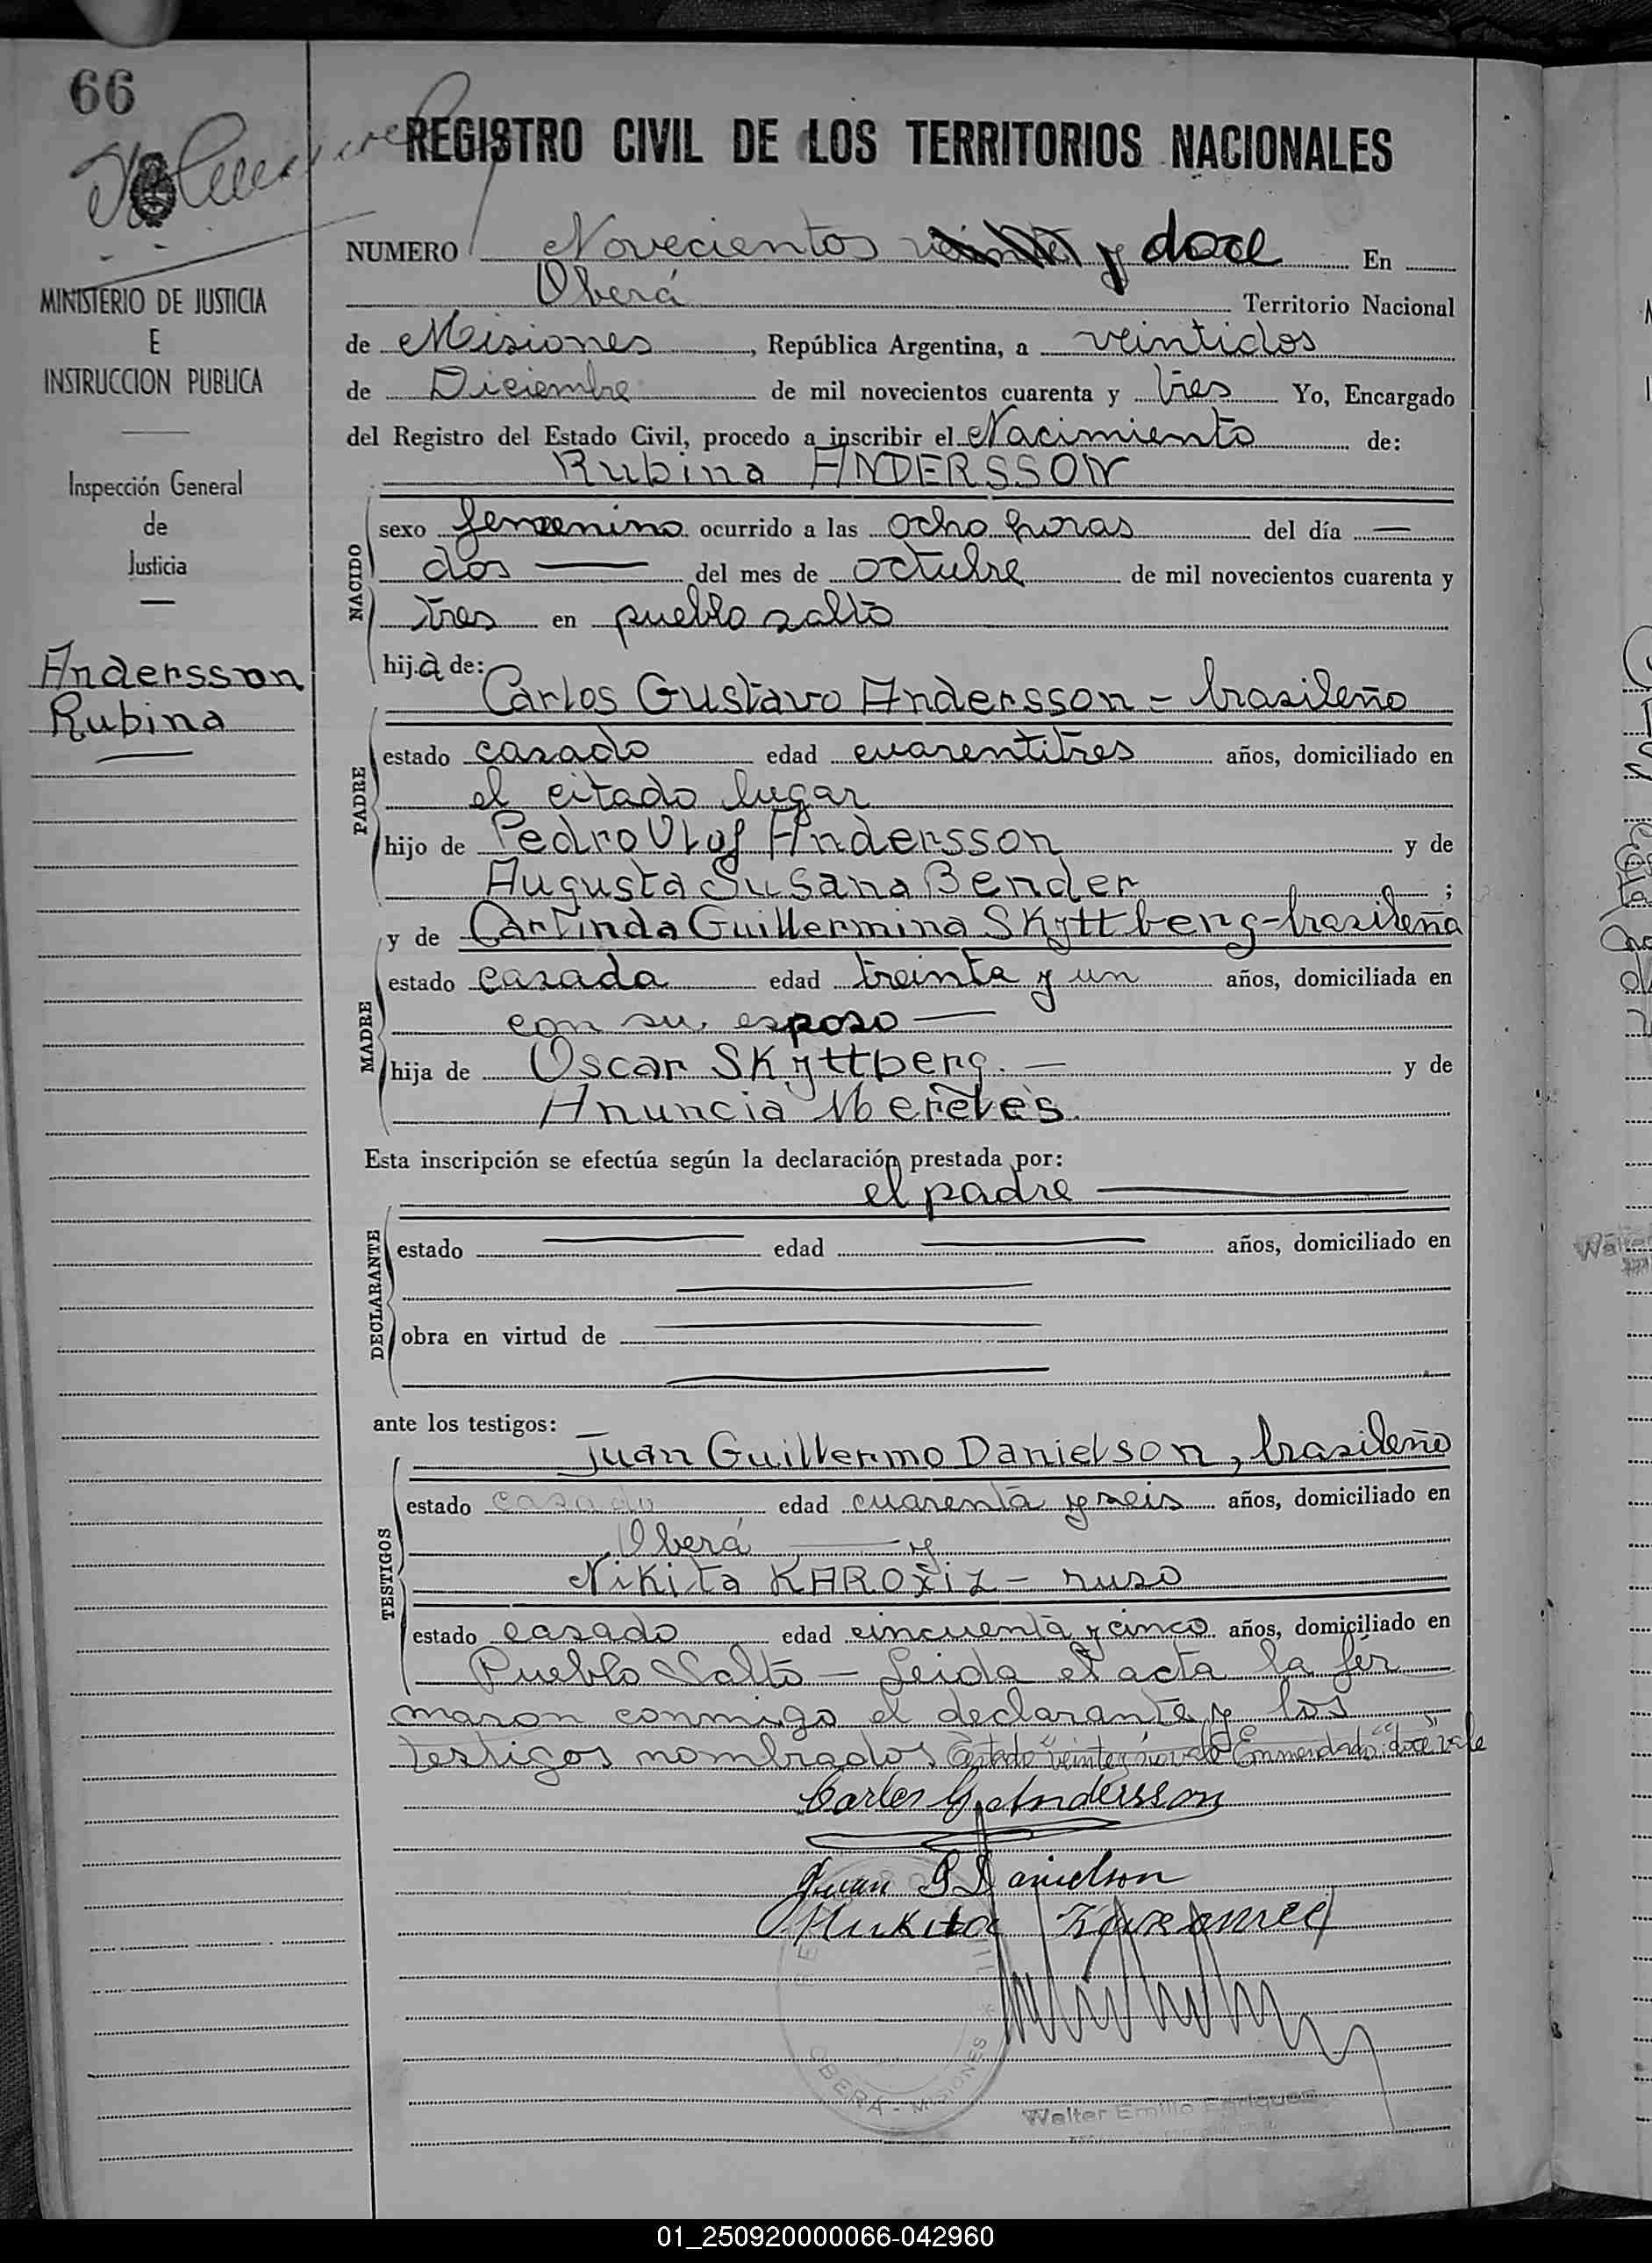 66
REGISTRO CIVIL DE LOS TERRITORIOS NACIONALES
NUMERO Novecientos y doce En
Oberá Territorio Nacional
MINISTERIO DE JUSTICIA
E
INSTRUCCION PUBLICA
de Misiones, República Argentina, a veintidos
de Diciembre de mil novecientos cuarenta y tres Yo, Encargado
del Registro del Estado Civil, procedo a inscribir el Nacimiento de:
Rubina ANDERSSON
Inspección General
de
Justicia
NACIDO
sexo femenino ocurrido a las ocho horas del día —
dos — del mes de octubre de mil novecientos cuarenta y
tres en pueblo salto
Andersson
Rubina
hija de:
Carlos Gustavo Andersson - brasileño
PADRE
estado casado edad cuarentitres años, domiciliado en
el citado lugar
hijo de Pedro Olof Andersson y de
Augusta Susana Bender ;
y de Carlinda Guillermina Skyttberg - brasileña
MADRE
estado casada edad treinta y un años, domiciliada en
con su esposo —
hija de Oscar Skyttberg. — y de
Anuncia
Esta inscripción se efectúa según la declaración prestada por:
el padre
DECLARANTE
estado edad años, domiciliado en
obra en virtud de
ante los testigos:
Juan Guillermo Danielson, brasileño
TESTIGOS
estado casado edad cuarenta y seis años, domiciliado en
Oberá — y
Nikita - ruso
estado casado edad cincuenta y cinco años, domiciliado en
Pueblo Salto — Leida el acta la fir
maron conmigo el declarante y los
testigos nombrados Enmendado: "doce" vale
Carlos G. Andersson
Juan G Danielson
OBERÁ - MISIONES
Walter Emilio Enriquez
01_250920000066-042960